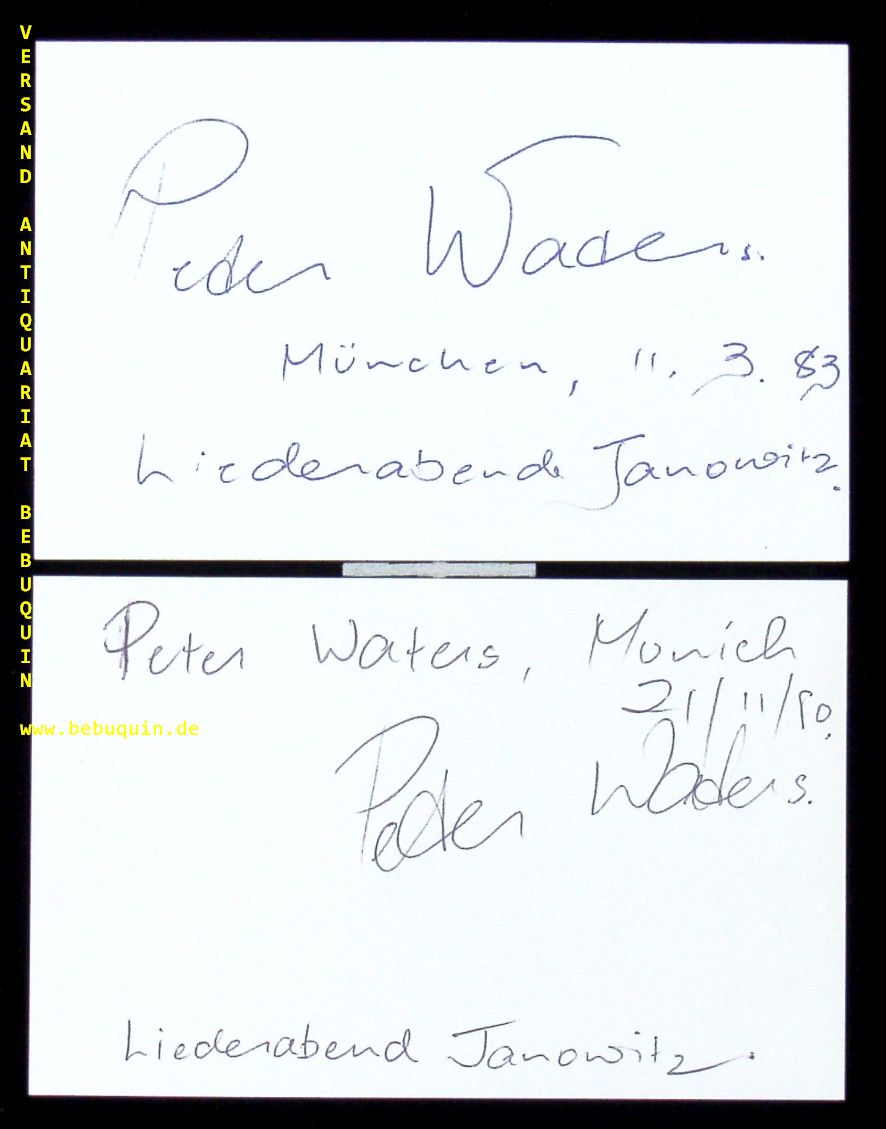 VERSAND ANTIQUARIAT BEBUQUIN
Peter Waters.
München, 11. 3. 83
Liederabend Janowitz.
Peter Waters, Munich
21/11/80.
www.bebuquin.de
Peter Waters.
Liederabend Janowitz.